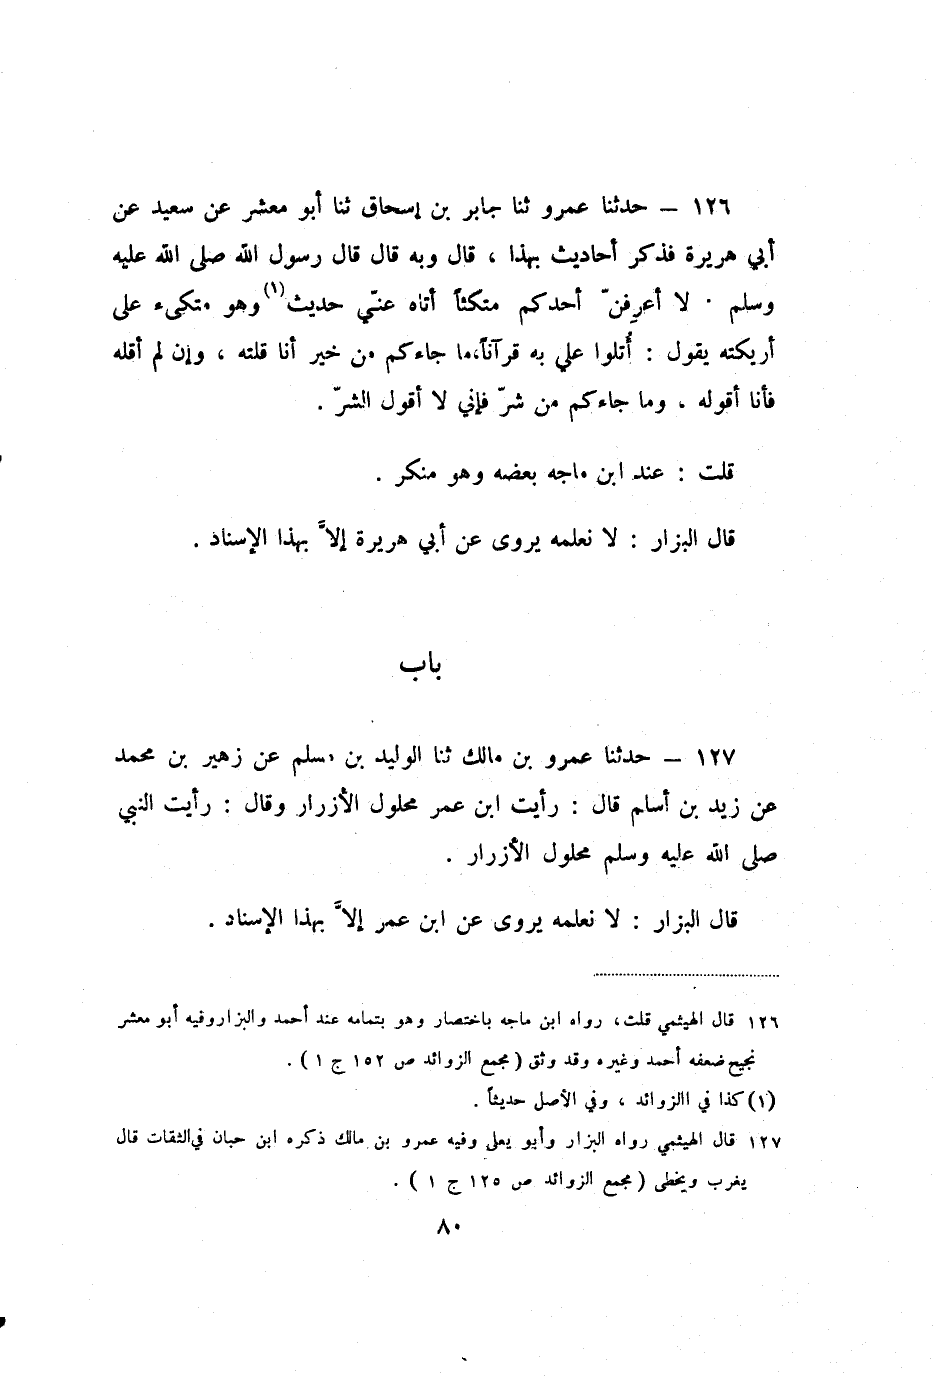 ١٢٦ – حدثنا عمرو ثنا جابر بن إسحاق ثنا أبو معشر عن سعيد عن
أبي هريرة فذكر أحاديث بهذا ، قال وبه قال قال رسول الله صلى الله عليه
وسلم . لا أعرِفنّ أحدكم متكئاً أتاه عنّي حديث(١) وهو متكىء على
أريكته يقول : أُتلوا علي به قرآناً،ما جاءكم من خير أنا قلته ، وإن لم أقله
فأنا أقوله . وما جاءكم من شرّ فإني لا أقول الشرّ .
قلت : عند ابن ماجه بعضه وهو منكر .
قال البزار : لا نعلمه يروى عن أبي هريرة إلاَّ بهذا الإسناد .
باب
١٢٧ – حدثنا عمرو بن مالك ثنا الوليد بن مسلم عن زهير بن محمد
عن زيد بن أسلم قال : رأيت ابن عمر محلول الأزرار وقال : رأيت النبي
صلى الله عليه وسلم محلول الأزرار .
قال البزار : لا نعلمه يروى عن ابن عمر إلاَّ بهذا الإسناد .
١٢٦ قال الهيثمي قلت، رواه ابن ماجه باختصار وهو بتمامه عند أحمد والبزاروفيه أبو معشر
نجيح ضعفه أحمد وغيره وقد وثق ( مجمع الزوائد ص ١٥٢ ج ١ ) .
(١) كذا في االزوائد ، وفي الأصل حديثاً .
١٢٧ قال الهيثمي رواه البزار وأبو يعلى وفيه عمرو بن مالك ذكره ابن حبان في الثقات قال
يغرب ويخطى ( مجمع الزوائد ص ١٢٥ ج ١ ) .
٨٠